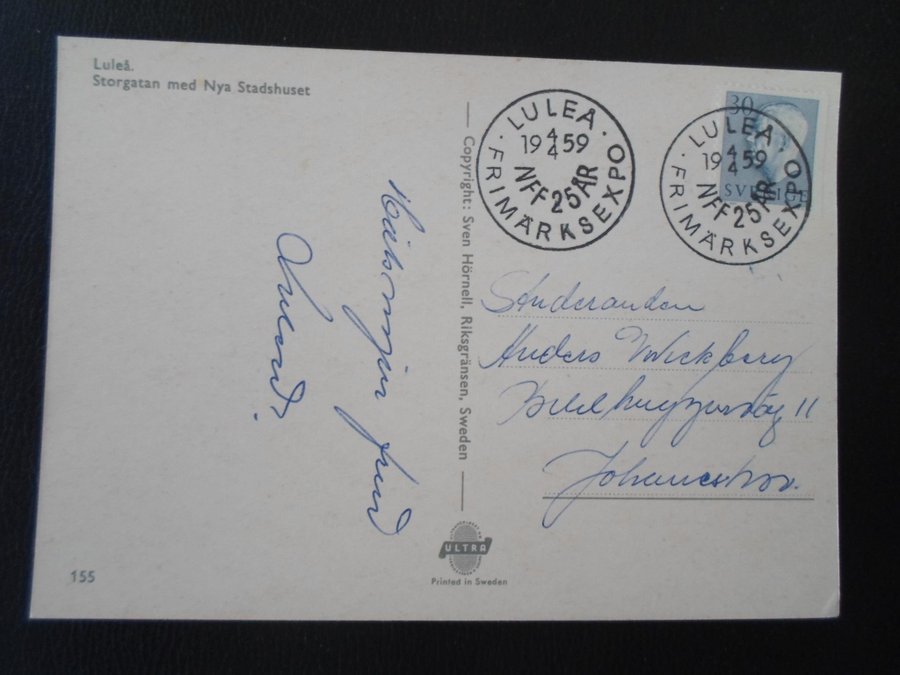 Luleå.
Storgatan med Nya Stadshuset
LULEÅ
19 4/4 59
NFF 25 ÅR
FRIMÄRKSEXPO
30
SVERIGE
LULEÅ
19 4/4 59
NFF 25 ÅR
FRIMÄRKSEXPO
Copyright: Sven Hörnell, Riksgränsen, Sweden
från
Studeranden
Anders Wickberg
11
Johanneshov.
ULTRA
Printed in Sweden
155